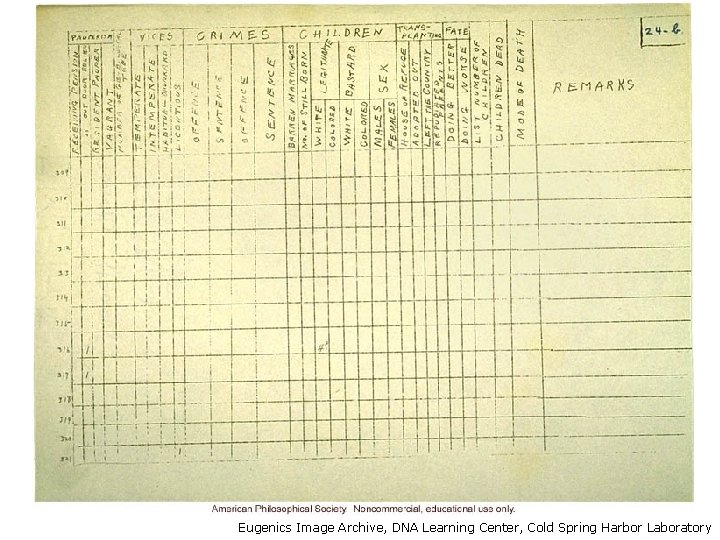 PAUPERISM VICES CRIMES CHILDREN TRANS-PLANTING FATE 24-b
RECEIVING PENSION
RESIDENT PAUPER
VAGRANT
TEMPERATE
INTEMPERATE
HABITUAL DRUNKARD
LICENTIOUS
OFFENCE
SENTENCE
OFFENCE
SENTENCE
BARREN MARRIAGES
NO. OF STILL BORN
WHITE LEGITIMATE
COLORED
WHITE BASTARD
COLORED
MALES SEX
FEMALES
HOUSE OF REFUGE
ADOPTED OUT
LEFT THE COUNTRY
DOING BETTER
DOING WORSE
LIST NUMBER OF CHILDREN
CHILDREN DEAD
MODE OF DEATH
REMARKS
309
310
311
312
313
314
315
316 1 4
317 1
318
319
320
321
American Philosophical Society. Noncommercial, educational use only.
Eugenics Image Archive, DNA Learning Center, Cold Spring Harbor Laboratory